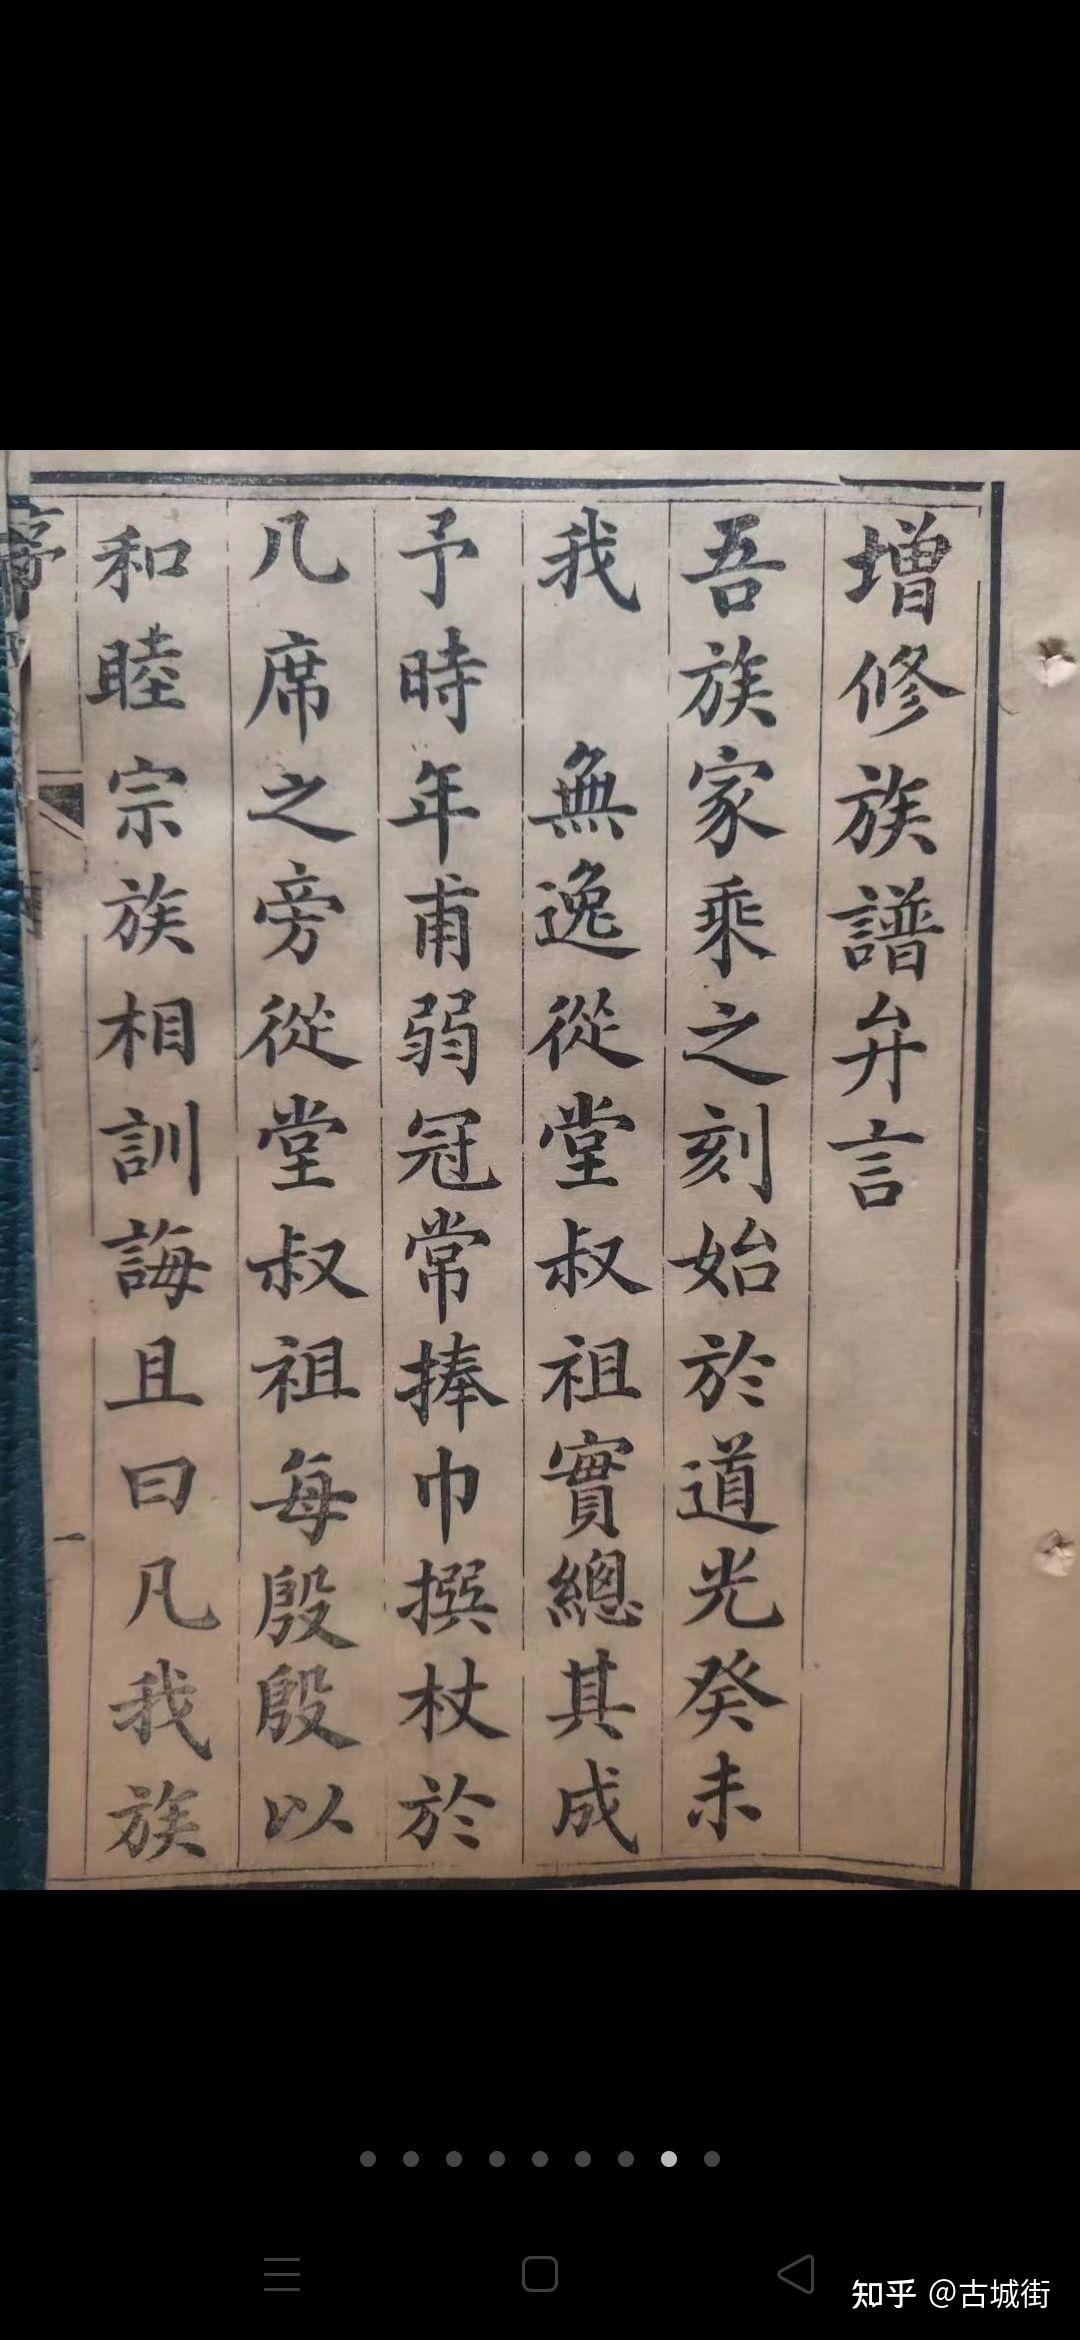 增修族譜弁言
吾族家乘之刻始於道光癸未
我 無逸從堂叔祖實總其成
予時年甫弱冠常捧巾撰杖於
几席之旁從堂叔祖每殷殷以
和睦宗族相訓誨且曰凡我族
一
知乎 @古城街